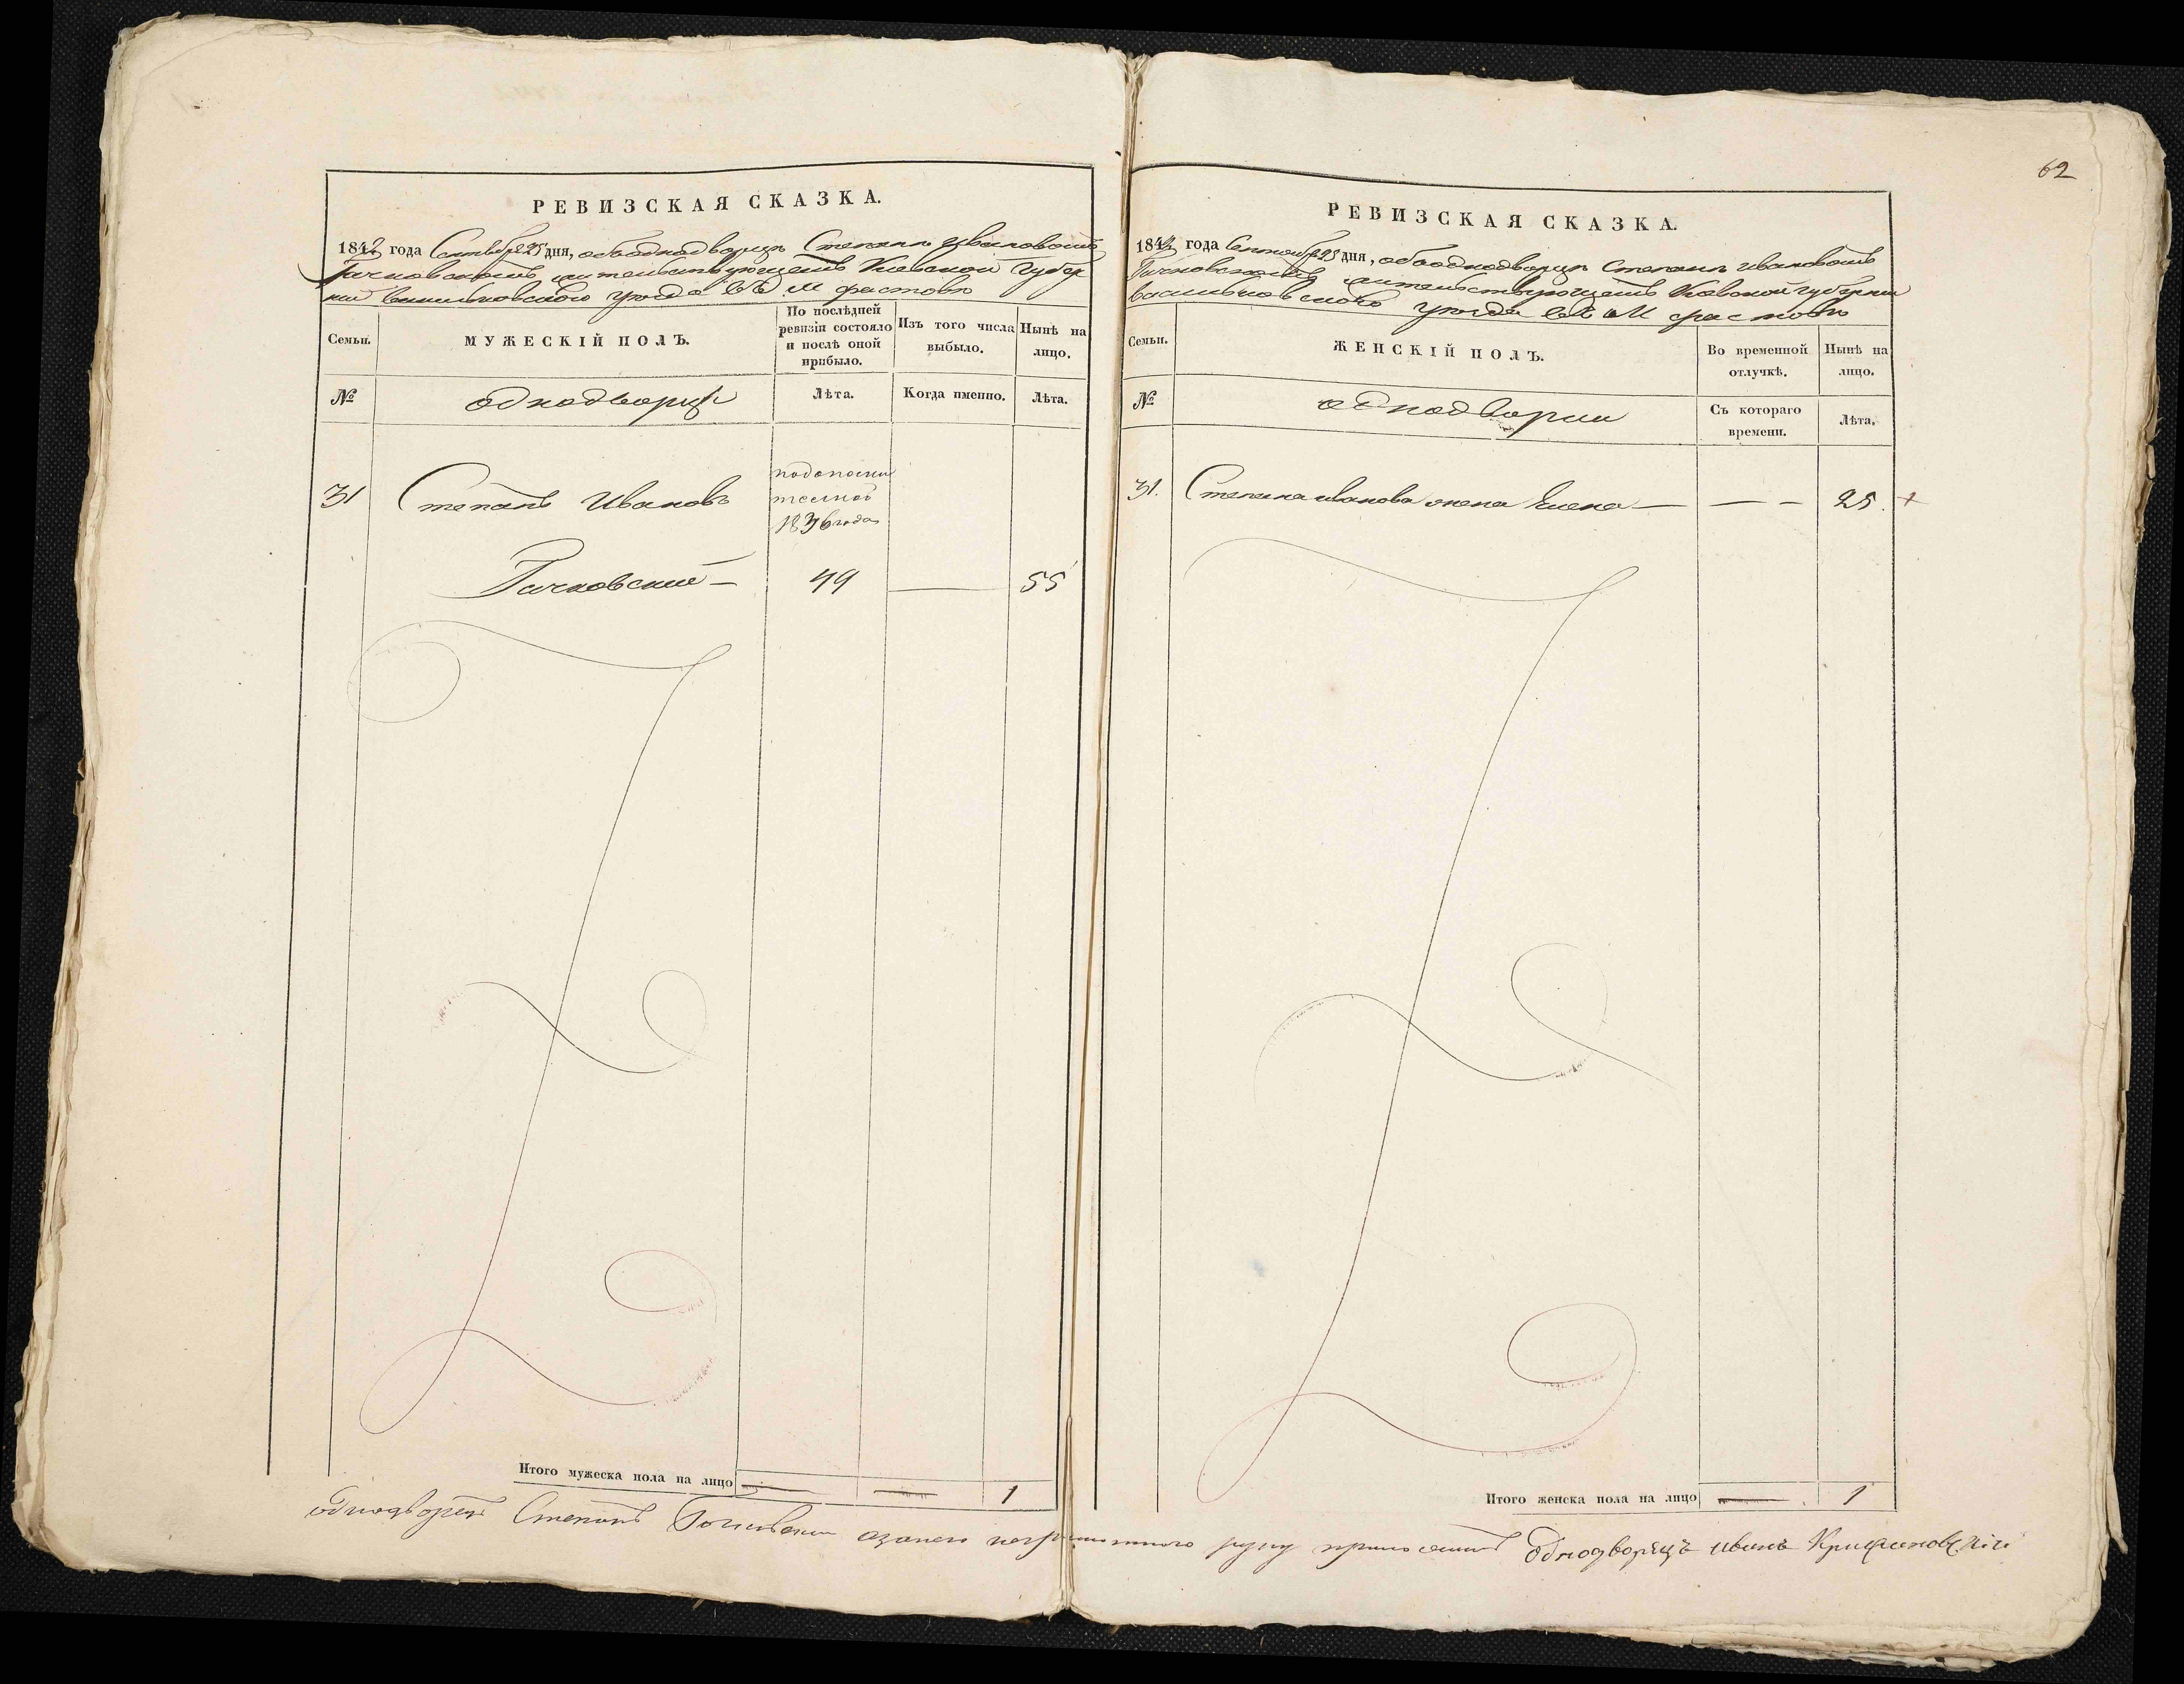 62
РЕВИЗСКАЯ СКАЗКА.
1842 года Сентября 25 дня, ободнодворце Степане Ивановомъ
жительствующемъ Киевской Губер
нии Васильковского уезда въ М Фастове
Семьи.
МУЖЕСКІЙ ПОЛЪ.
По послѣдней ревизіи состояло и послѣ оной прибыло.
Изъ того числа выбыло.
Нынѣ на лицо.
№
однодворцы
Лѣта.
Когда именно.
Лѣта.
31
Степанъ Ивановъ
1836 года
Гачковский
49
55
Итого мужеска пола на лицо
1
РЕВИЗСКАЯ СКАЗКА.
1842 года Сентября 25 дня, ободнодворце Степане Ивановомъ
жительствующемъ Киевской губернии
Васильковского уезда въ М Фастове
Семьи.
ЖЕНСКІЙ ПОЛЪ.
Во временной отлучкѣ.
Нынѣ на лицо.
№
однодворки
Съ котораго времени.
Лѣта.
31.
Степана иванова жена Елена
25.
Итого женска пола на лицо
1
однодворец Степанъ Гачковский азанего неграмотного руку приложилъ Однодворецъ иванъ